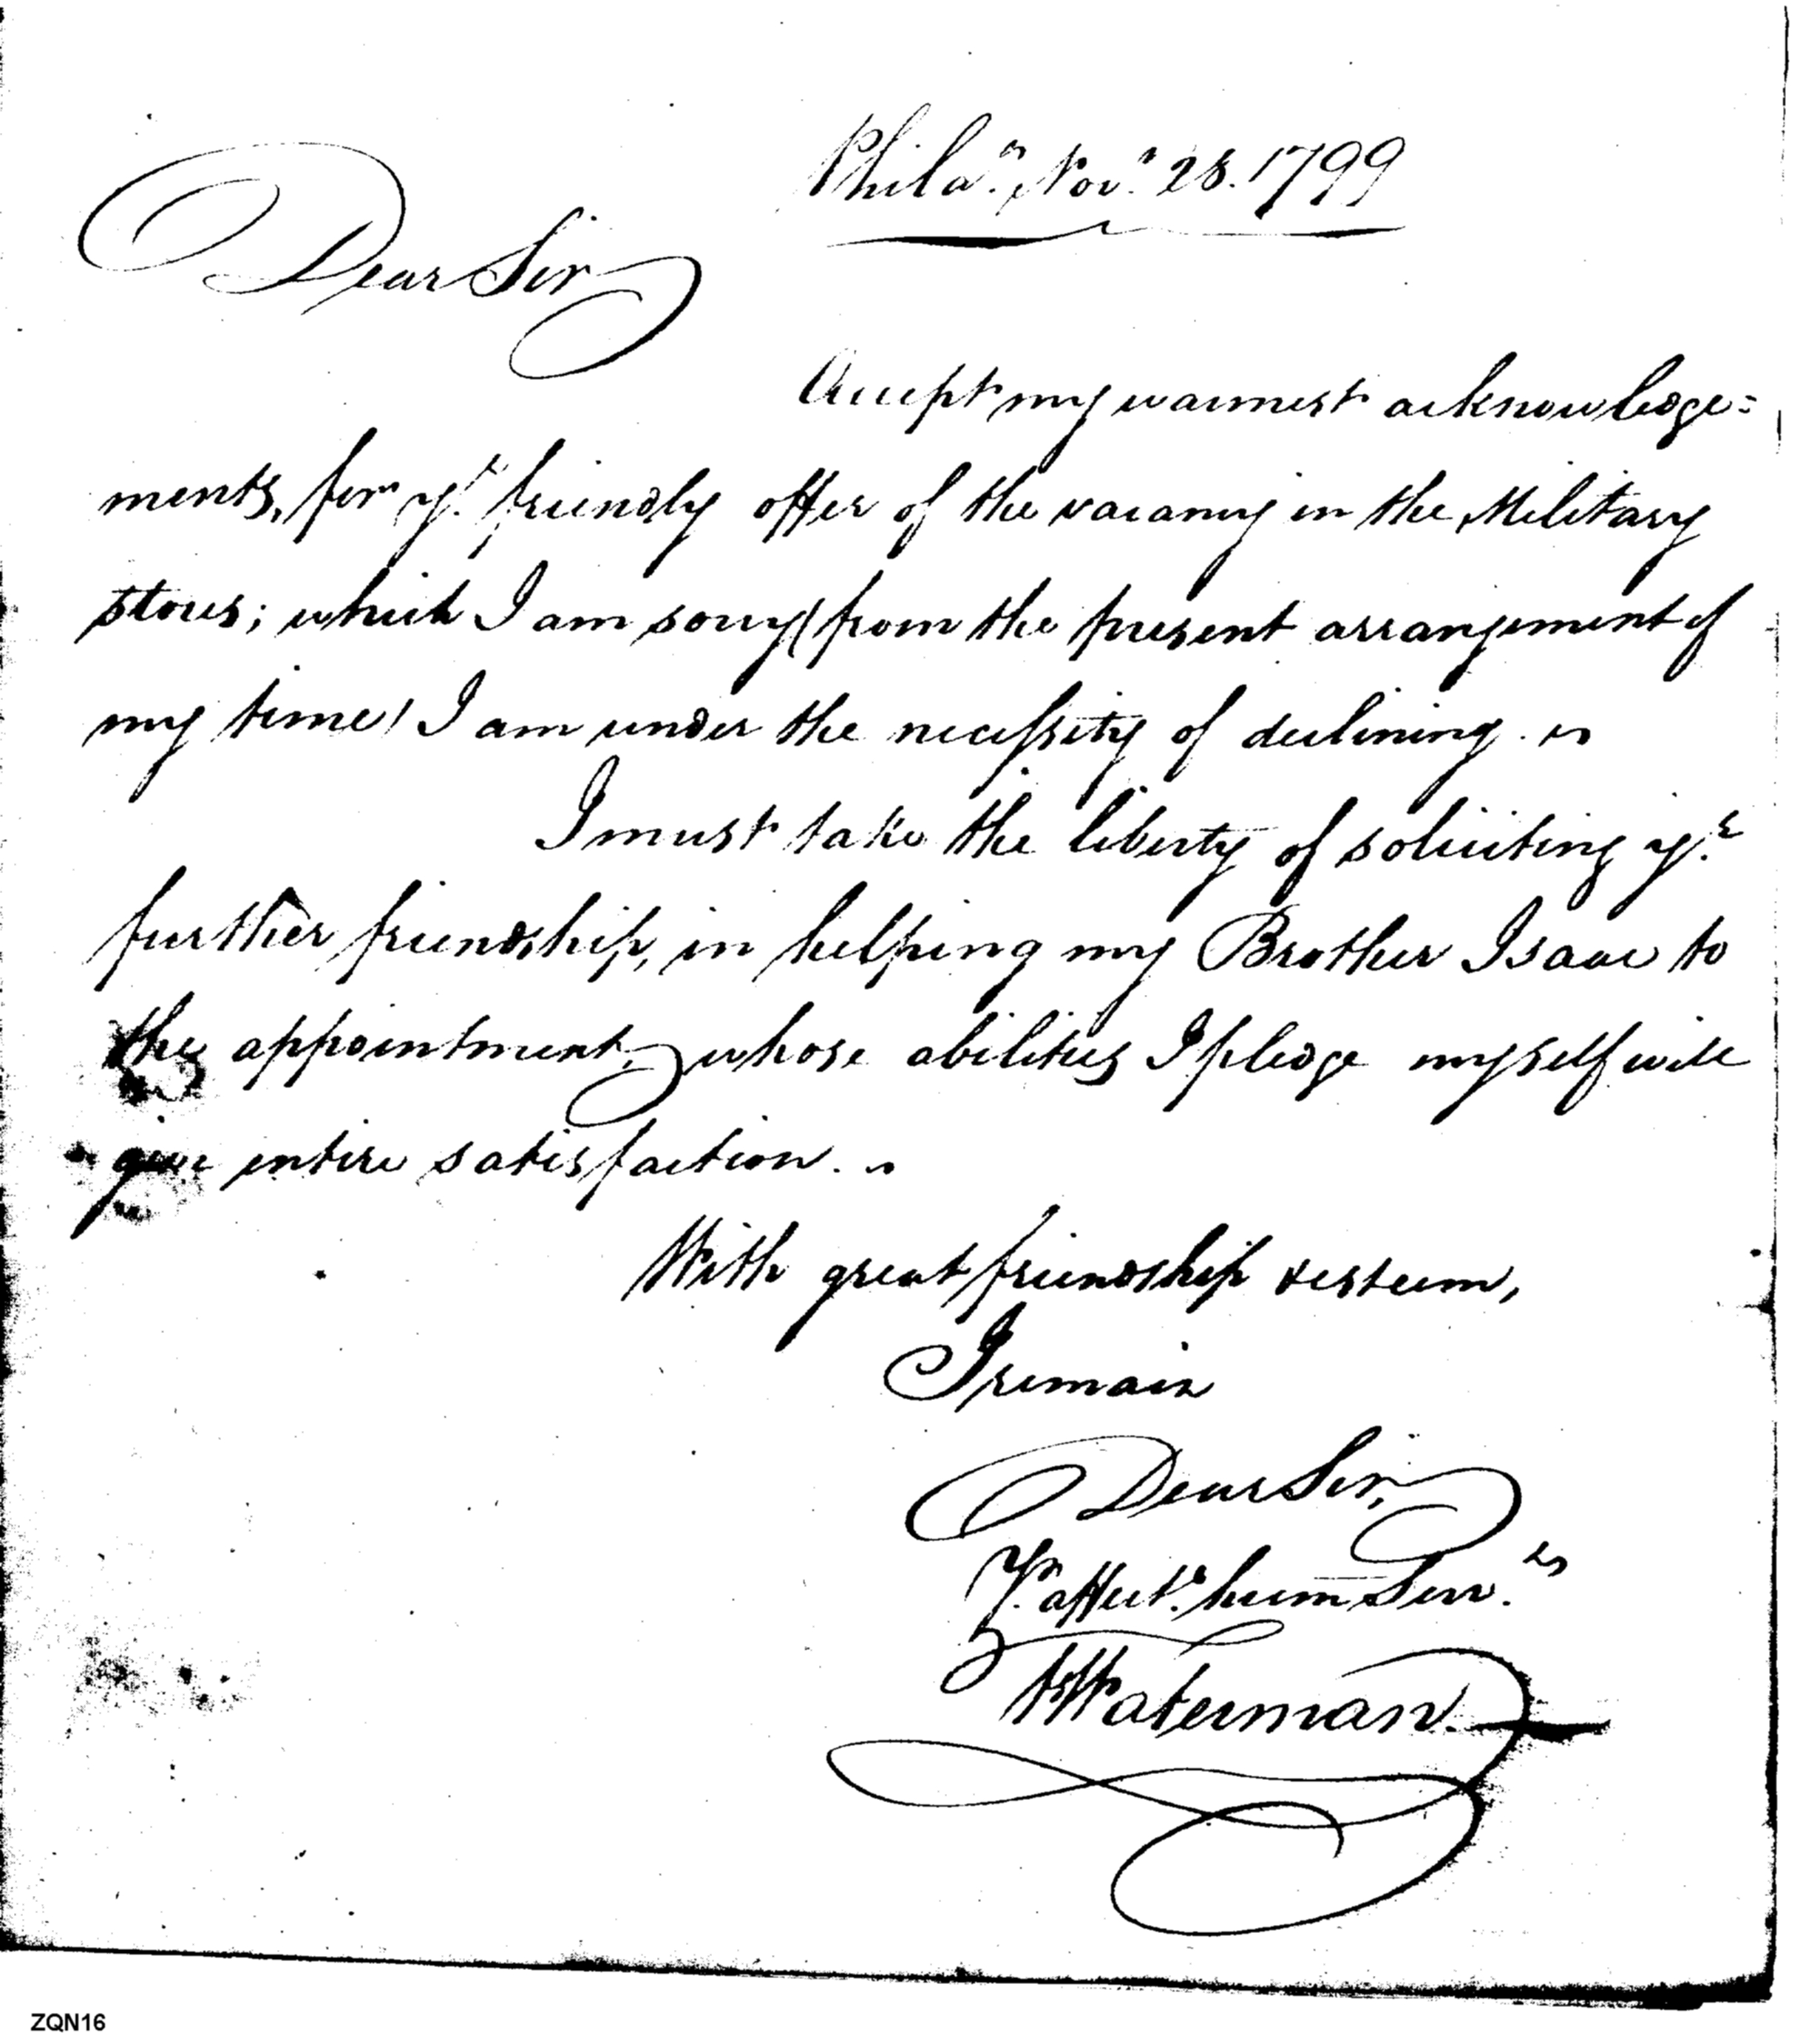 Philaª. Novʳ. 28. 1799
Dear Sir
Accept my warmest acknowledge=
ments, for yʳ. friendly offer of the vacancy in the Military
stores; which I am sorry (from the present arrangement of
my time) I am under the necessity of declining.
I must take the liberty of soliciting yʳ.
further friendship, in helping my Brother Isaac to
the appointment, whose abilities I pledge myself will
give entire satisfaction.
With great friendship & esteem,
I remain
Dear Sir,
Yʳ. affectᵉ. hum Serv.ᵗ
Waterman.
ZQN16